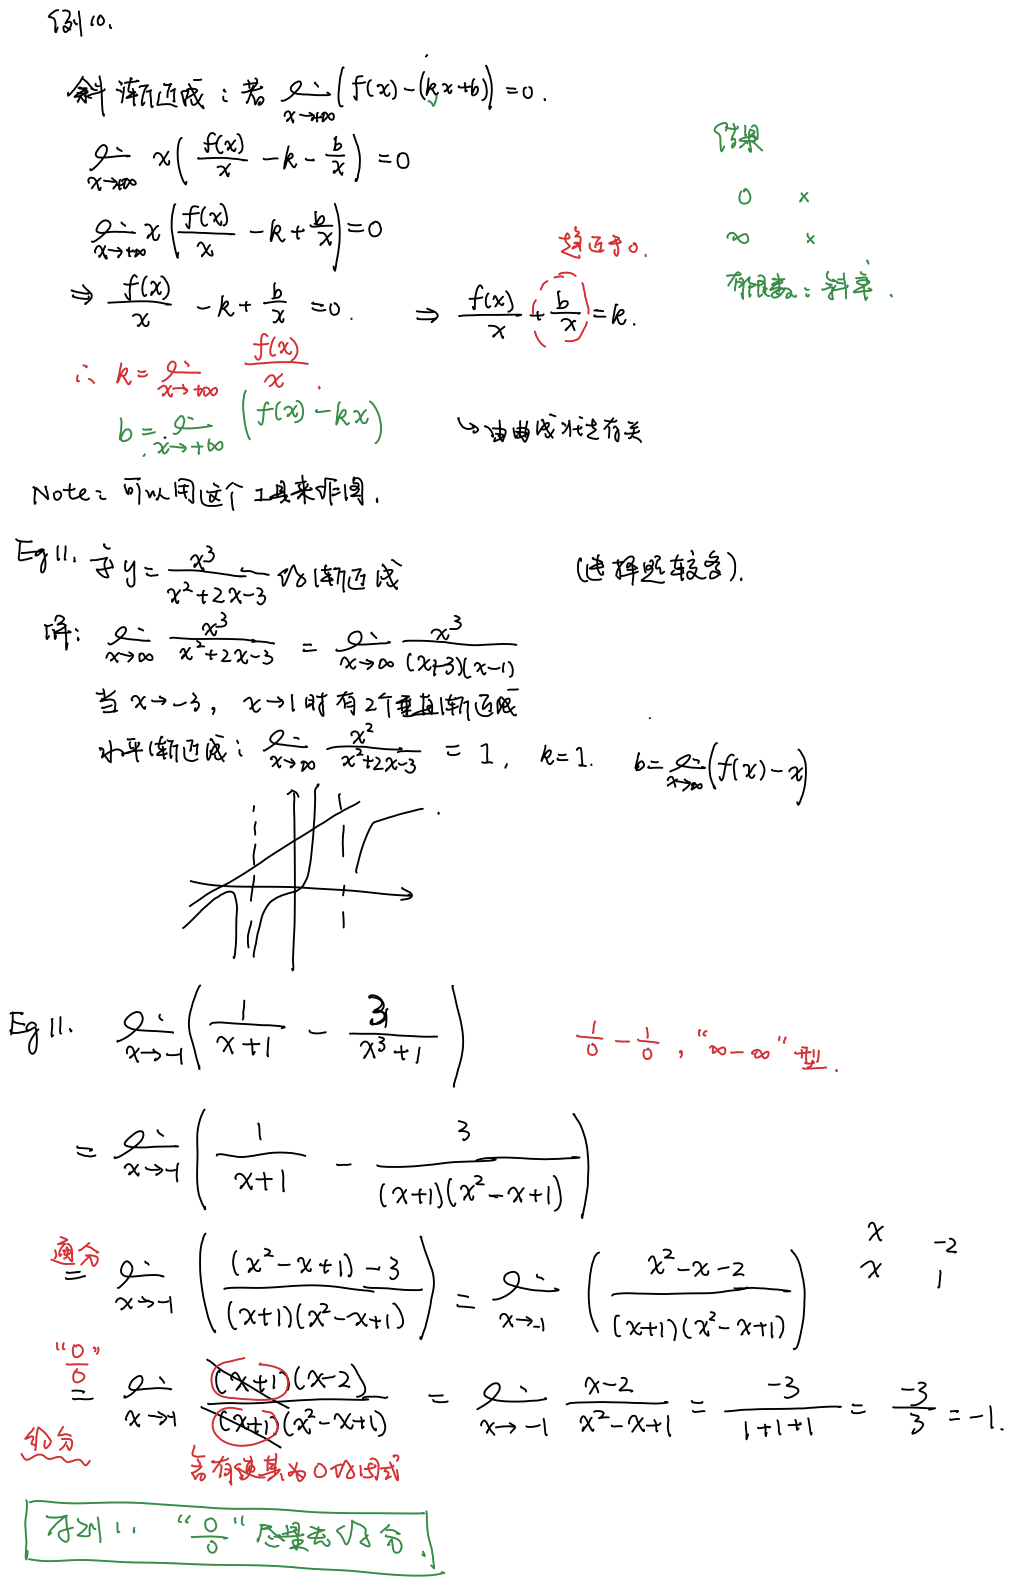 例10.
斜渐近线：若 lim_{x→+∞} (f(x) - (kx+b)) = 0.
lim_{x→+∞} x( f(x)/x - k - b/x ) = 0
结果
0 ×
∞ ×
有限数：斜率.
lim_{x→+∞} x( f(x)/x - k + b/x ) = 0
趋近于0.
⇒ f(x)/x - k + b/x = 0. ⇒ f(x)/x + b/x = k.
∴ k = lim_{x→+∞} f(x)/x.
b = lim_{x→+∞} (f(x) - kx)
↳ 由曲线状态有关
Note: 可以用这个工具来作图.
Eg 11. 求 y = x³/(x²+2x-3) 的渐近线 (选择题较多).
解: lim_{x→∞} x³/(x²+2x-3) = lim_{x→∞} x³/((x+3)(x-1))
当 x→-3, x→1时有2个垂直渐近线
水平渐近线: lim_{x→∞} x²/(x²+2x-3) = 1, k=1. b = lim_{x→∞} (f(x) - x)
Eg 11. lim_{x→-1} ( 1/(x+1) - 3/(x³+1) ) 1/0 - 1/0, "∞-∞"型.
= lim_{x→-1} ( 1/(x+1) - 3/((x+1)(x²-x+1)) )
通分
= lim_{x→-1} ( ((x²-x+1)-3)/((x+1)(x²-x+1)) ) = lim_{x→-1} ( (x²-x-2)/((x+1)(x²-x+1)) )
x -2
x 1
"0/0"
= lim_{x→1} ((x+1)(x-2))/((x+1)(x²-x+1)) = lim_{x→-1} (x-2)/(x²-x+1) = -3/(1+1+1) = -3/3 = -1.
约分
含有使其为0的因式
"0/0" 尽量去约分.